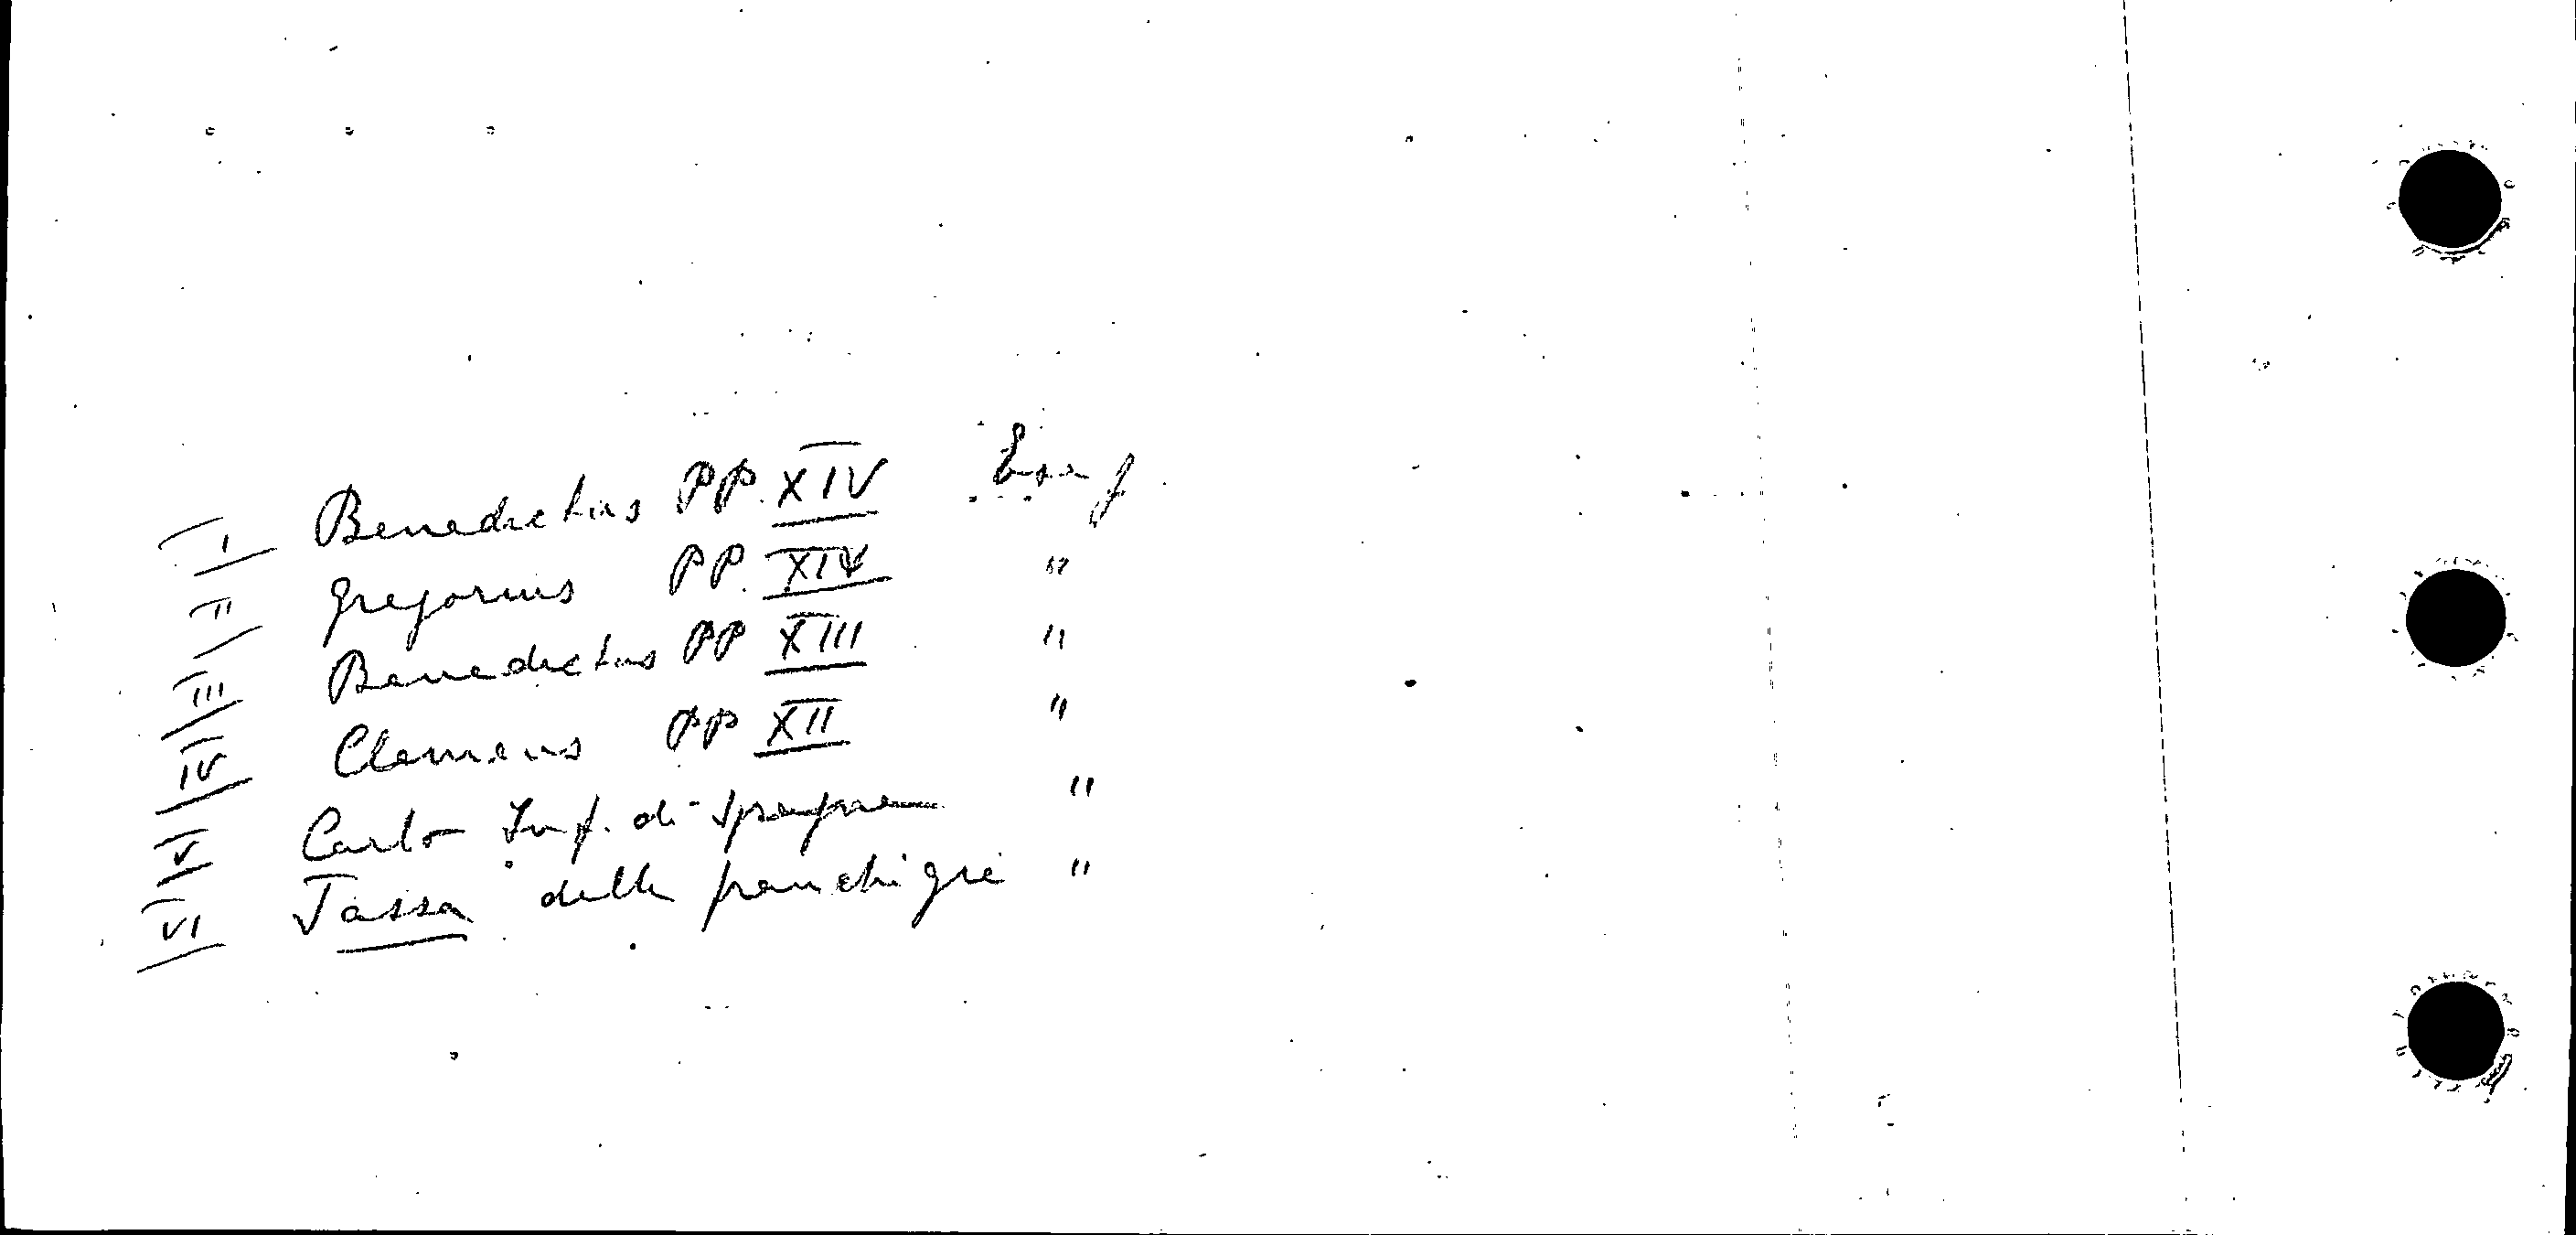 I Benedictus PP. XIV
II Gregorius PP. XIV "
III Benedictus PP XIII "
IV Clemens PP XII "
V Carlo Inf. di Spagna "
VI Tassa delle franchigie "